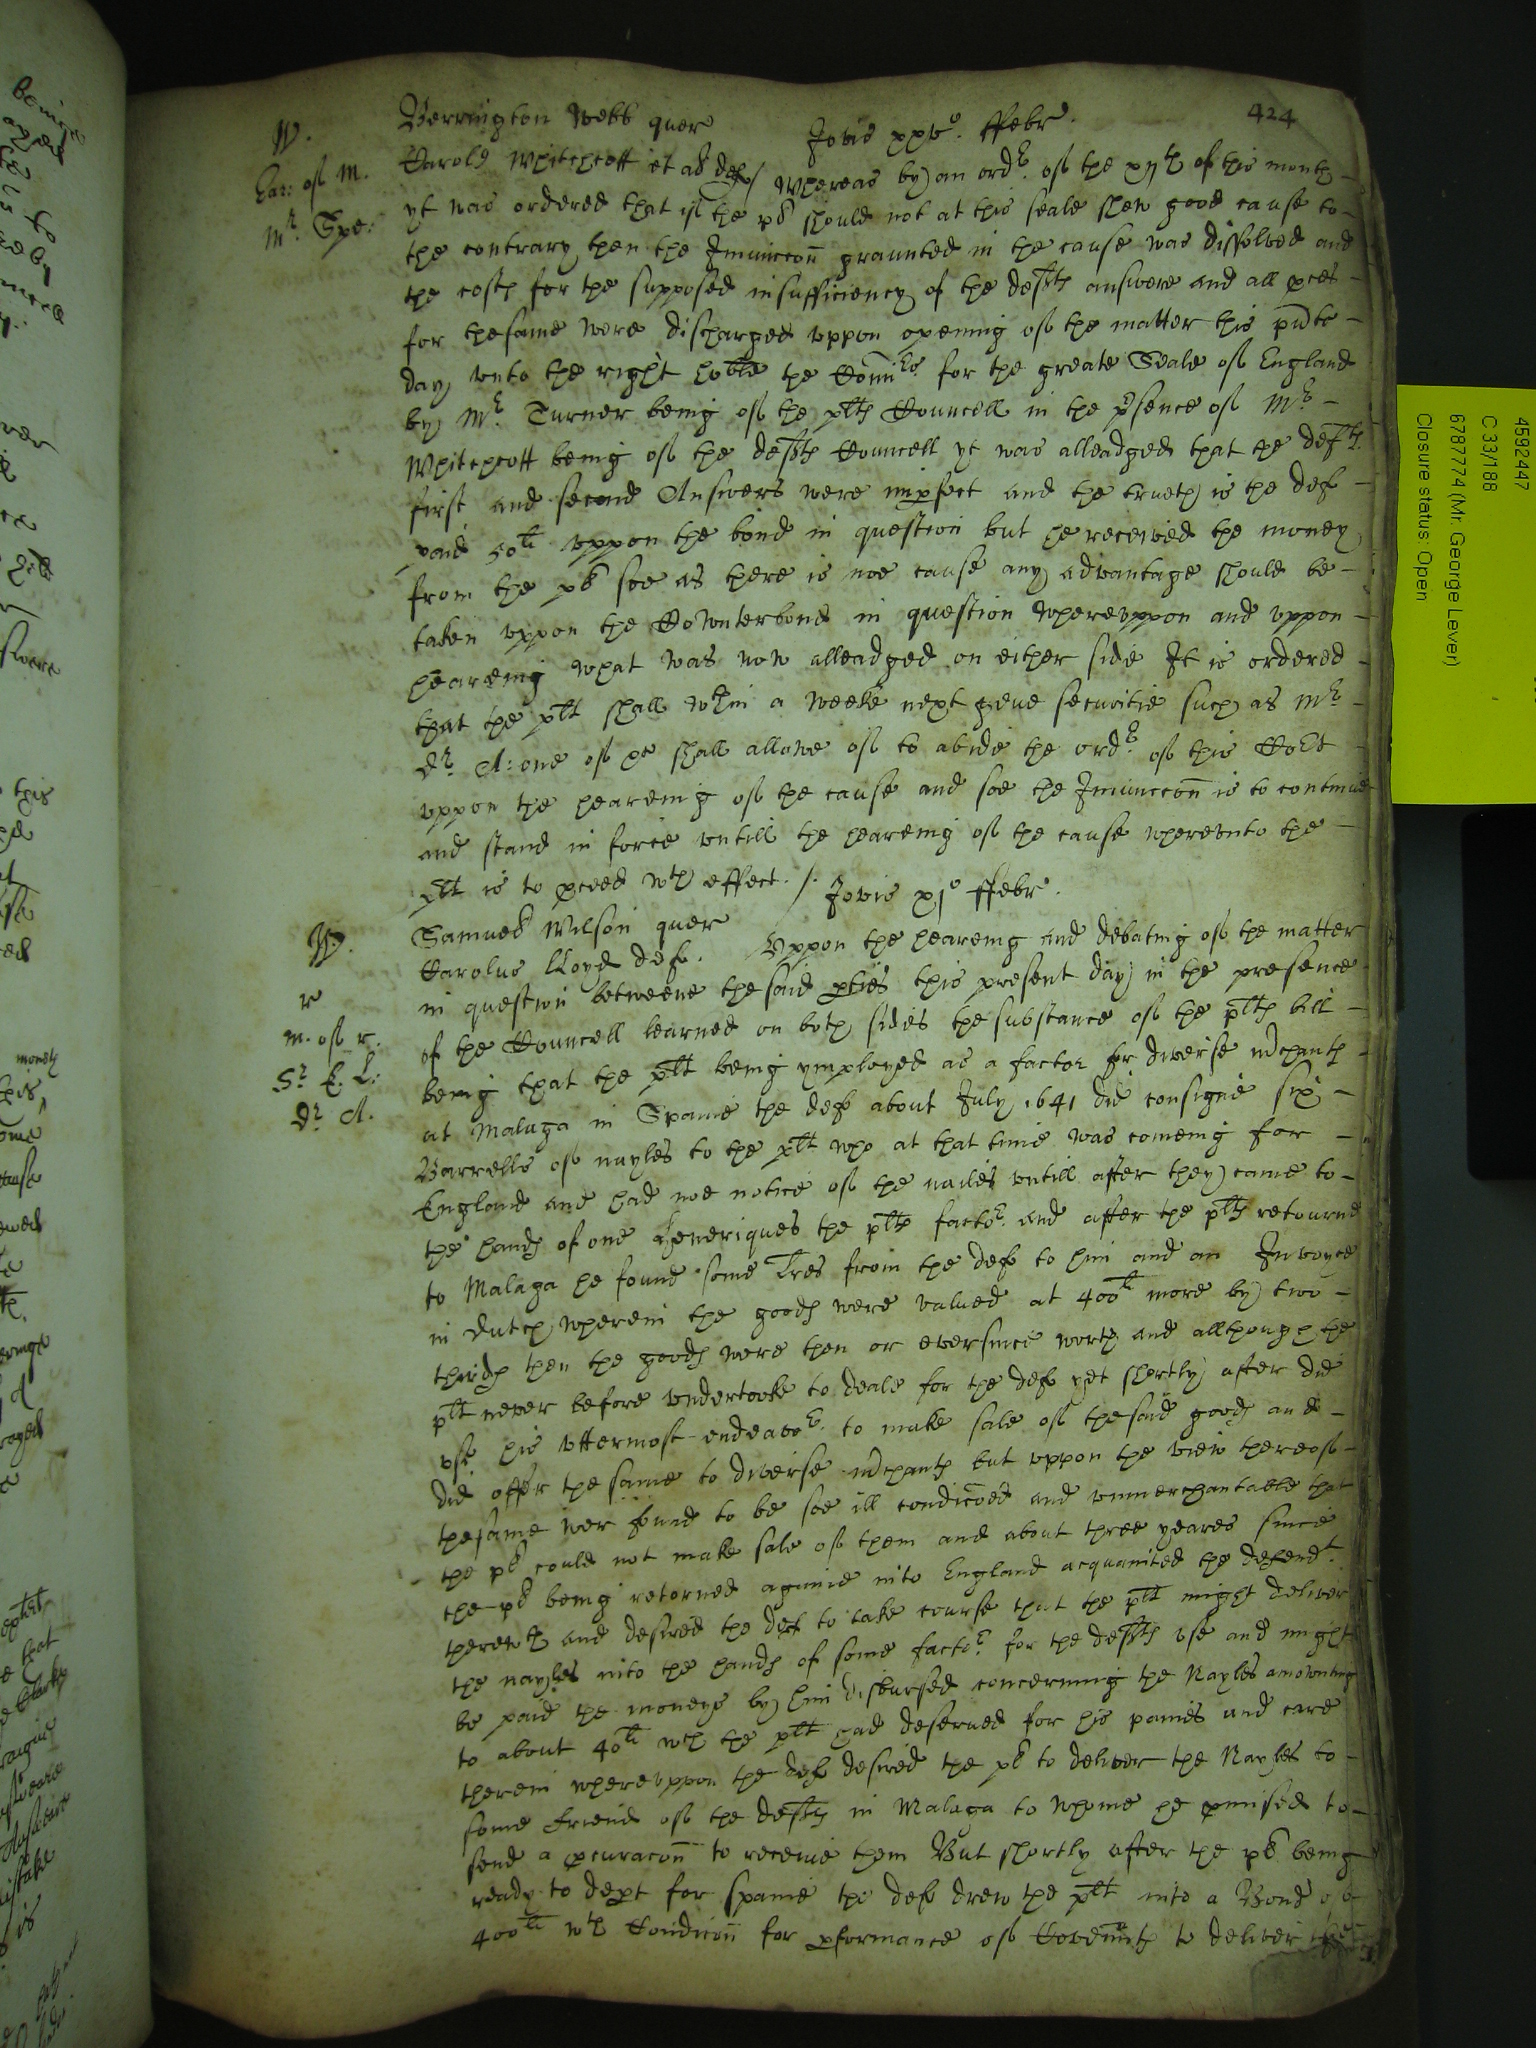 424
Berrington Webb quer
Jovis xxv°. ffebr.
W.
Ear: of M.
Mr. Spe:
Karolus Whitchcott et al def / Whereas by an ordr. of the xijth of this month
yt was ordered that if the pl should not at this seale shew good cause to
the contrary then the Iniunccon graunted in the cause was dissolved and
the costs for the supposed insufficiency of the defts answere and all pces
for the same were discharged uppon opening of the matter this pnte
day unto the right hoble the Comrs. for the greate Seale of England
by Mr. Turner being of the plts Councell in the psence of Mr.
Whitchcott being of the defts Councell yt was alleadged that the defts
first and second Answers were impfect and the trueth is the def
paid 50li uppon the bond in question but he received the money
from the pl soe as there is noe cause any advantage should be
taken uppon the Counterbond in question whereuppon and uppon
heareing what was now alleadged on either side It is ordered
that the plt shall wthin a weeke next geve securitie such as Mr.
Dr. A: one of ye shall allowe of to abide the ordr. of this Cort
uppon the heareing of the cause and soe the Iniunccon is to continue
and stand in force untill the heareing of the cause whereunto the
plt is to pceed wth effect. /.
Jovis xj° ffebr.
W.
r
m. of r.
Sr. E. L:
Dr. A.
Samuel Wilson quer
Carolus Lloyd def. Uppon the heareing and debating of the matter
in question betweene the said pties this present day in the presence
of the Councell learned on both sides the substance of the plts bill
being that the plt being ymployed as a factor for diverse mchants
at Malaga in Spaine the def about July 1641 did consigne six
Barrells of nayles to the plt who at that time was comeing for
England and had noe notice of the nailes untill after they came to
the hands of one Henriques the plts factor. and after the plts retourne
to Malaga he found some lres from the def to him and an Invoyce
in dutch wherein the goods were valued at 400li more by two
thirds then the goods were then or ever since worth and allthough the
plt never before undertooke to deale for the def yet shortly after did
use his uttermost endeavor. to make sale of the said goods and
did offer the same to diverse mchants but uppon the view thereof
the same wer found to be soe ill condicoed and unmerchantable that
the pl could not make sale of them and about three yeares since
the pl being retorned againe into England acquainted the defendt.
therewth and desired the def to take course that the plt might deliver
the nayles into the hands of some factor. for the defts use and might
be paid the moneys by him disbursed concerning the Nayles amounting
to about 40li wch the plt had deserved for his paines and care
therein whereuppon the def desired the pl to deliver the Nayles to
some friend of the defts in Malaga to whome he pmised to
send a pcuracon to receive them But shortly after the pl being
ready to dept for spaine the def drew the plt into a Bond of
400li wth Condicon for pformance of Covennts to deliver the
4592447
C 33/188
6787774 (Mr. George Lever)
Closure status: Open